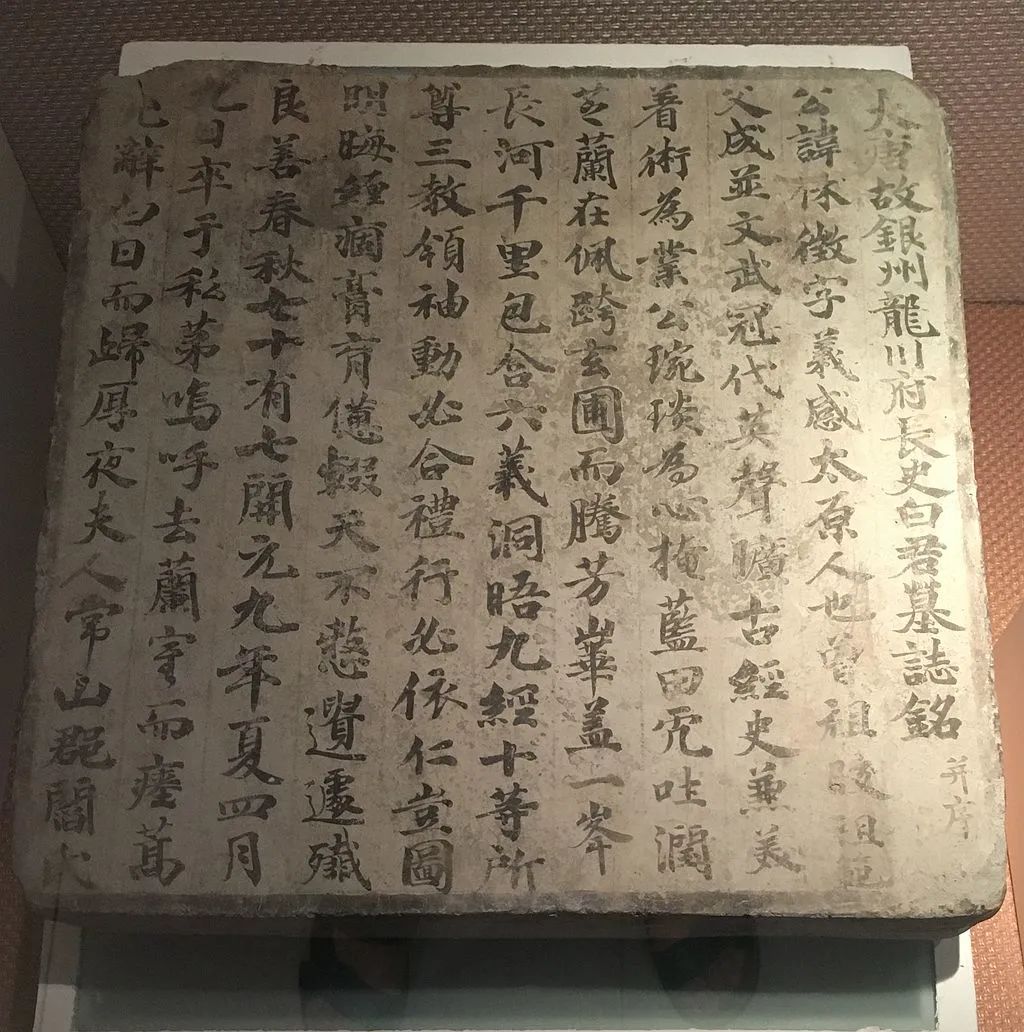 大唐故銀州龍川府長史白君墓誌銘 并序
公諱休徵字義感太原人也曾祖陵祖範
父成並文武冠代英聲曠古經史兼美
著術為業公琬琰為心掩藍田而吐潤
芝蘭在佩跨玄圃而騰芳華蓋一峯
長河千里包含六義洞晤九經十等所
尊三教領袖動必合禮行必依仁豈圖
明晦纏痾膏肓僊輟天不憖遺遽殲
良善春秋七十有七開元九年夏四月
九日卒于私第嗚呼去蘭室而瘞萬
化辭白日而歸厚夜夫人常山郡閻氏